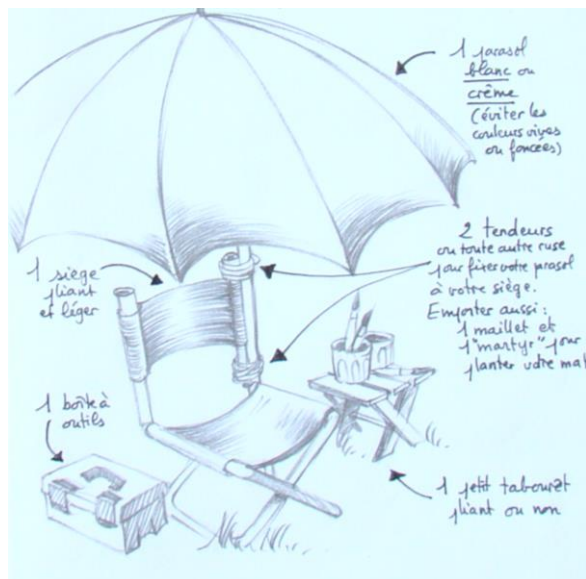 1 parasol
blanc ou
crème
(éviter les
couleurs vives
ou foncées)
2 tendeurs
ou toute autre ruse
pour fixer votre parasol
à votre siège.
Emporter aussi :
1 maillet et
1 "martyr" pour
planter votre mat
1 siège
pliant
et léger
1 boîte à
outils
1 petit tabouret
pliant ou non